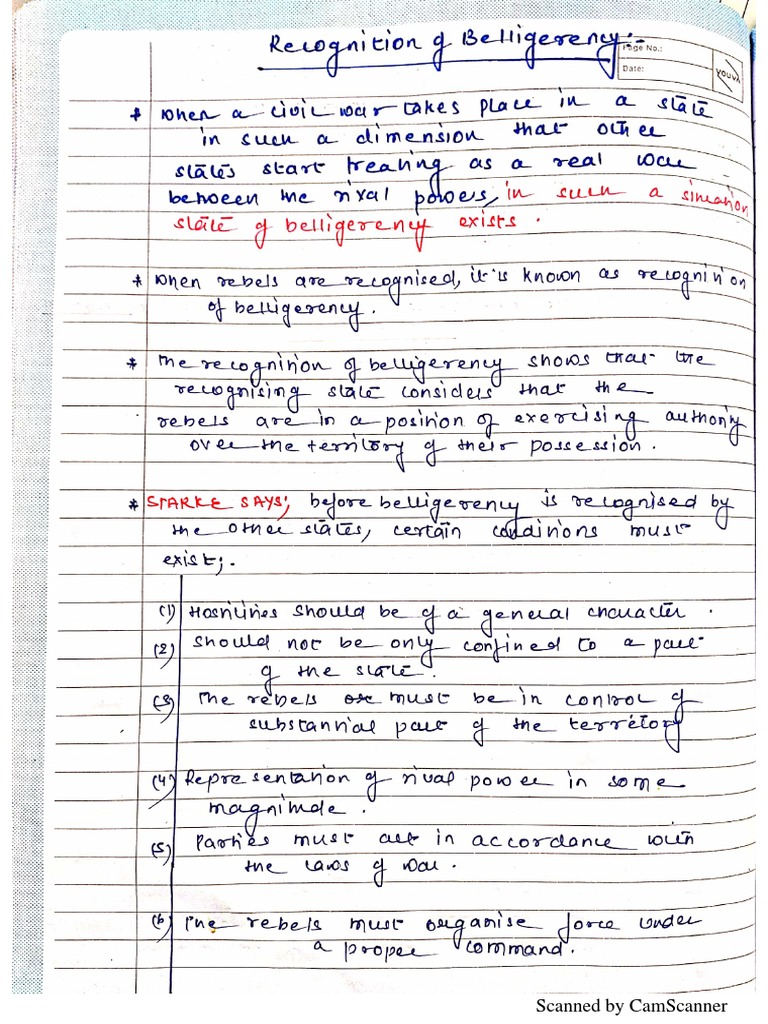 Recognition of Belligerency:-
Page No.:
Date:
YOUVA
* When a civil war takes place in a state
in such a dimension that other
states start treating as a real war
between the rival powers, in such a situation
state of belligerency exists.
* When rebels are recognised, it is known as recognition
of belligerency.
* The recognition of belligerency shows that the
recognising state considers that the
rebels are in a position of exercising authority
over the territory of their possession.
* STARKE SAYS; before belligerency is recognised by
the other states, certain conditions must
exist;.
(1) Hostilities should be of a general character.
(2) Should not be only confined to a part
of the state.
(3) The rebels must be in control of
substantial part of the territory
(4) Representation of rival power in some
magnitude.
(5) Parties must act in accordance with
the laws of war.
(6) The rebels must organise force under
a proper command.
Scanned by CamScanner